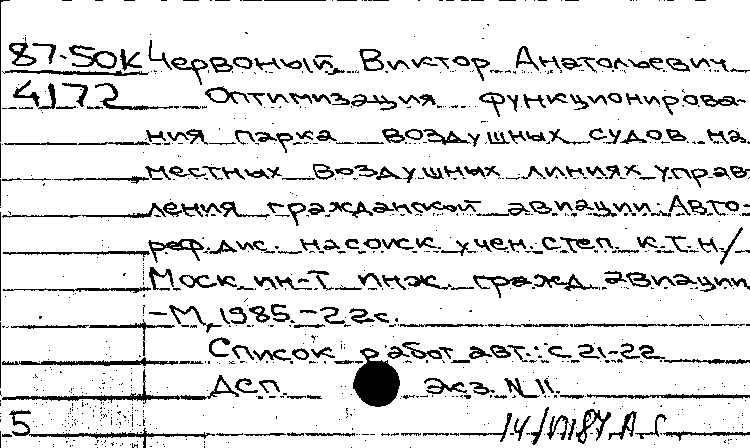 87-50К Червоный, Виктор Анатольевич
4172 Оптимизация функционирова-
ния парка воздушных судов на
местных воздушных линиях управ
ления гражданской авиации. Авто-
реф. дис. на соиск. учен. степ. к.т.н/
Моск. ин-т инж. гражд авиации
-М, 1985.-22с.
Список работ авт.: с 21-22
ДСП экз. N 11.
5 А.С.